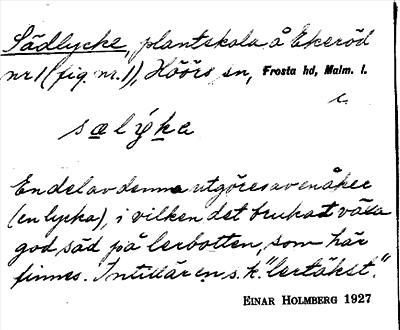 Sädlycke, plantskola å Ekeröd
nr 1 (fig. nr. 1), Höörs sn, Frosta hd, Malm. l.
c.
sælýka
En del av denna utgöres av en åker
(en lycka), i vilken det brukat växa
god säd på lerbotten, som här
finnes. Intill är en s. k. "lertäkst".
EINAR HOLMBERG 1927